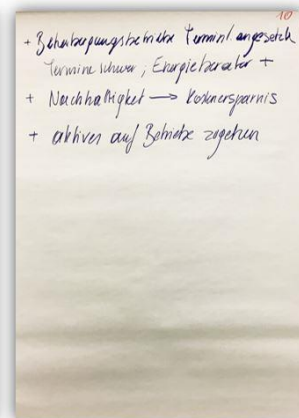 10
+ Beherbergungsbetriebe Terminl. angesetzt
Termine schwer; Energieberater +
+ Nachhaltigkeit → Kostenersparnis
+ aktiver auf Betriebe zugehen